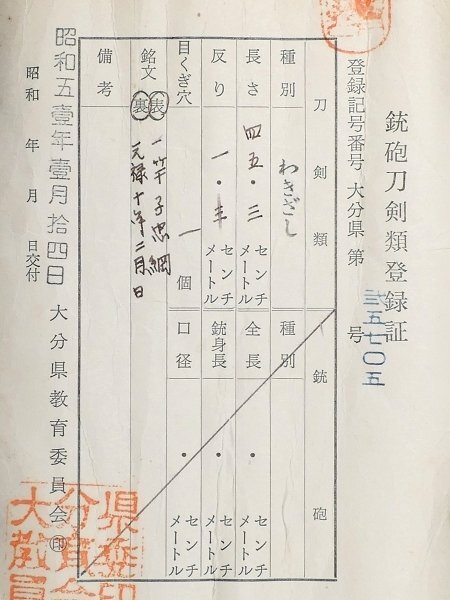 銃砲刀剣類登録証
登録記号番号 大分県 第 弐五七〇五 号
刀剣類 銃砲
種別 わきざし 種別
長さ 四五・三 センチメートル 全長 ・ センチメートル
反り 一・ センチメートル 銃身長 ・ センチメートル
目くぎ穴 一 個 口径 ・ センチメートル
銘文 表 一竿子忠綱
裏 元禄十年二月日
備考
昭和五壹年壹月拾四日 大分県教育委員会 印
昭和 年 月 日交付
県委印
分育会
大教員